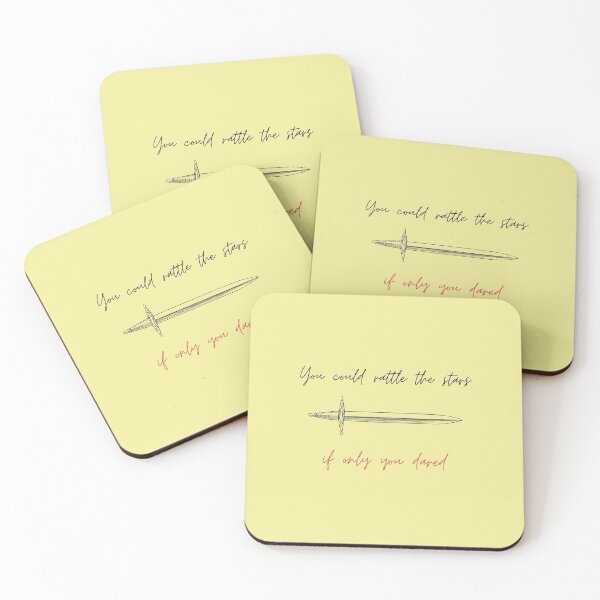 You could rattle the stars
dared
You could rattle the stars
if only you dared
You could rattle the stars
if only you da
You could rattle the stars
if only you dared